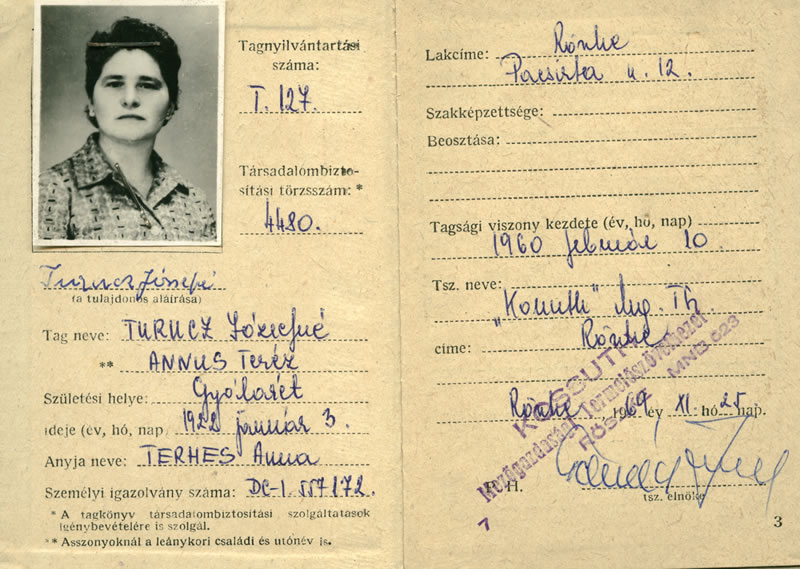 Tagnyilvántartási
száma:
T. 127.
Társadalombizto-
sítási törzsszám: *
4480.
Turucz Józsefné
(a tulajdonos aláírása)
Tag neve: TURUCZ Józsefné
** ANNUS Teréz
Születési helye: Gyálarét
ideje (év, hó, nap) 1922 január 3.
Anyja neve: TERHES Anna
Személyi igazolvány száma: DC-I. 557172.
* A tagkönyv társadalombiztosítási szolgáltatások
igénybevételére is szolgál.
** Asszonyoknál a leánykori családi és utónév is.
Lakcíme: Röszke
Pacsirta u. 12.
Szakképzettsége:
Beosztása:
Tagsági viszony kezdete (év, hó, nap)
1960 február 10.
Tsz. neve:
"Kossuth" Mg. Tsz
címe: Röszke
KOSSUTH
Mezőgazdasági Termelőszövetkezet
MNB 623
7
Röszke, 1969 év XI. hó 25 nap.
P. H.
tsz. elnöke
3